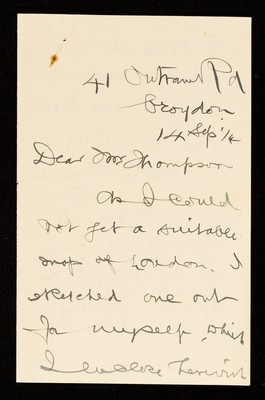 41 Outram Rd
Croydon
14 Sep '14
Dear Mr Thompson
As I could
not get a suitable
map of London, I
sketched one out
for myself, which
I enclose herewith